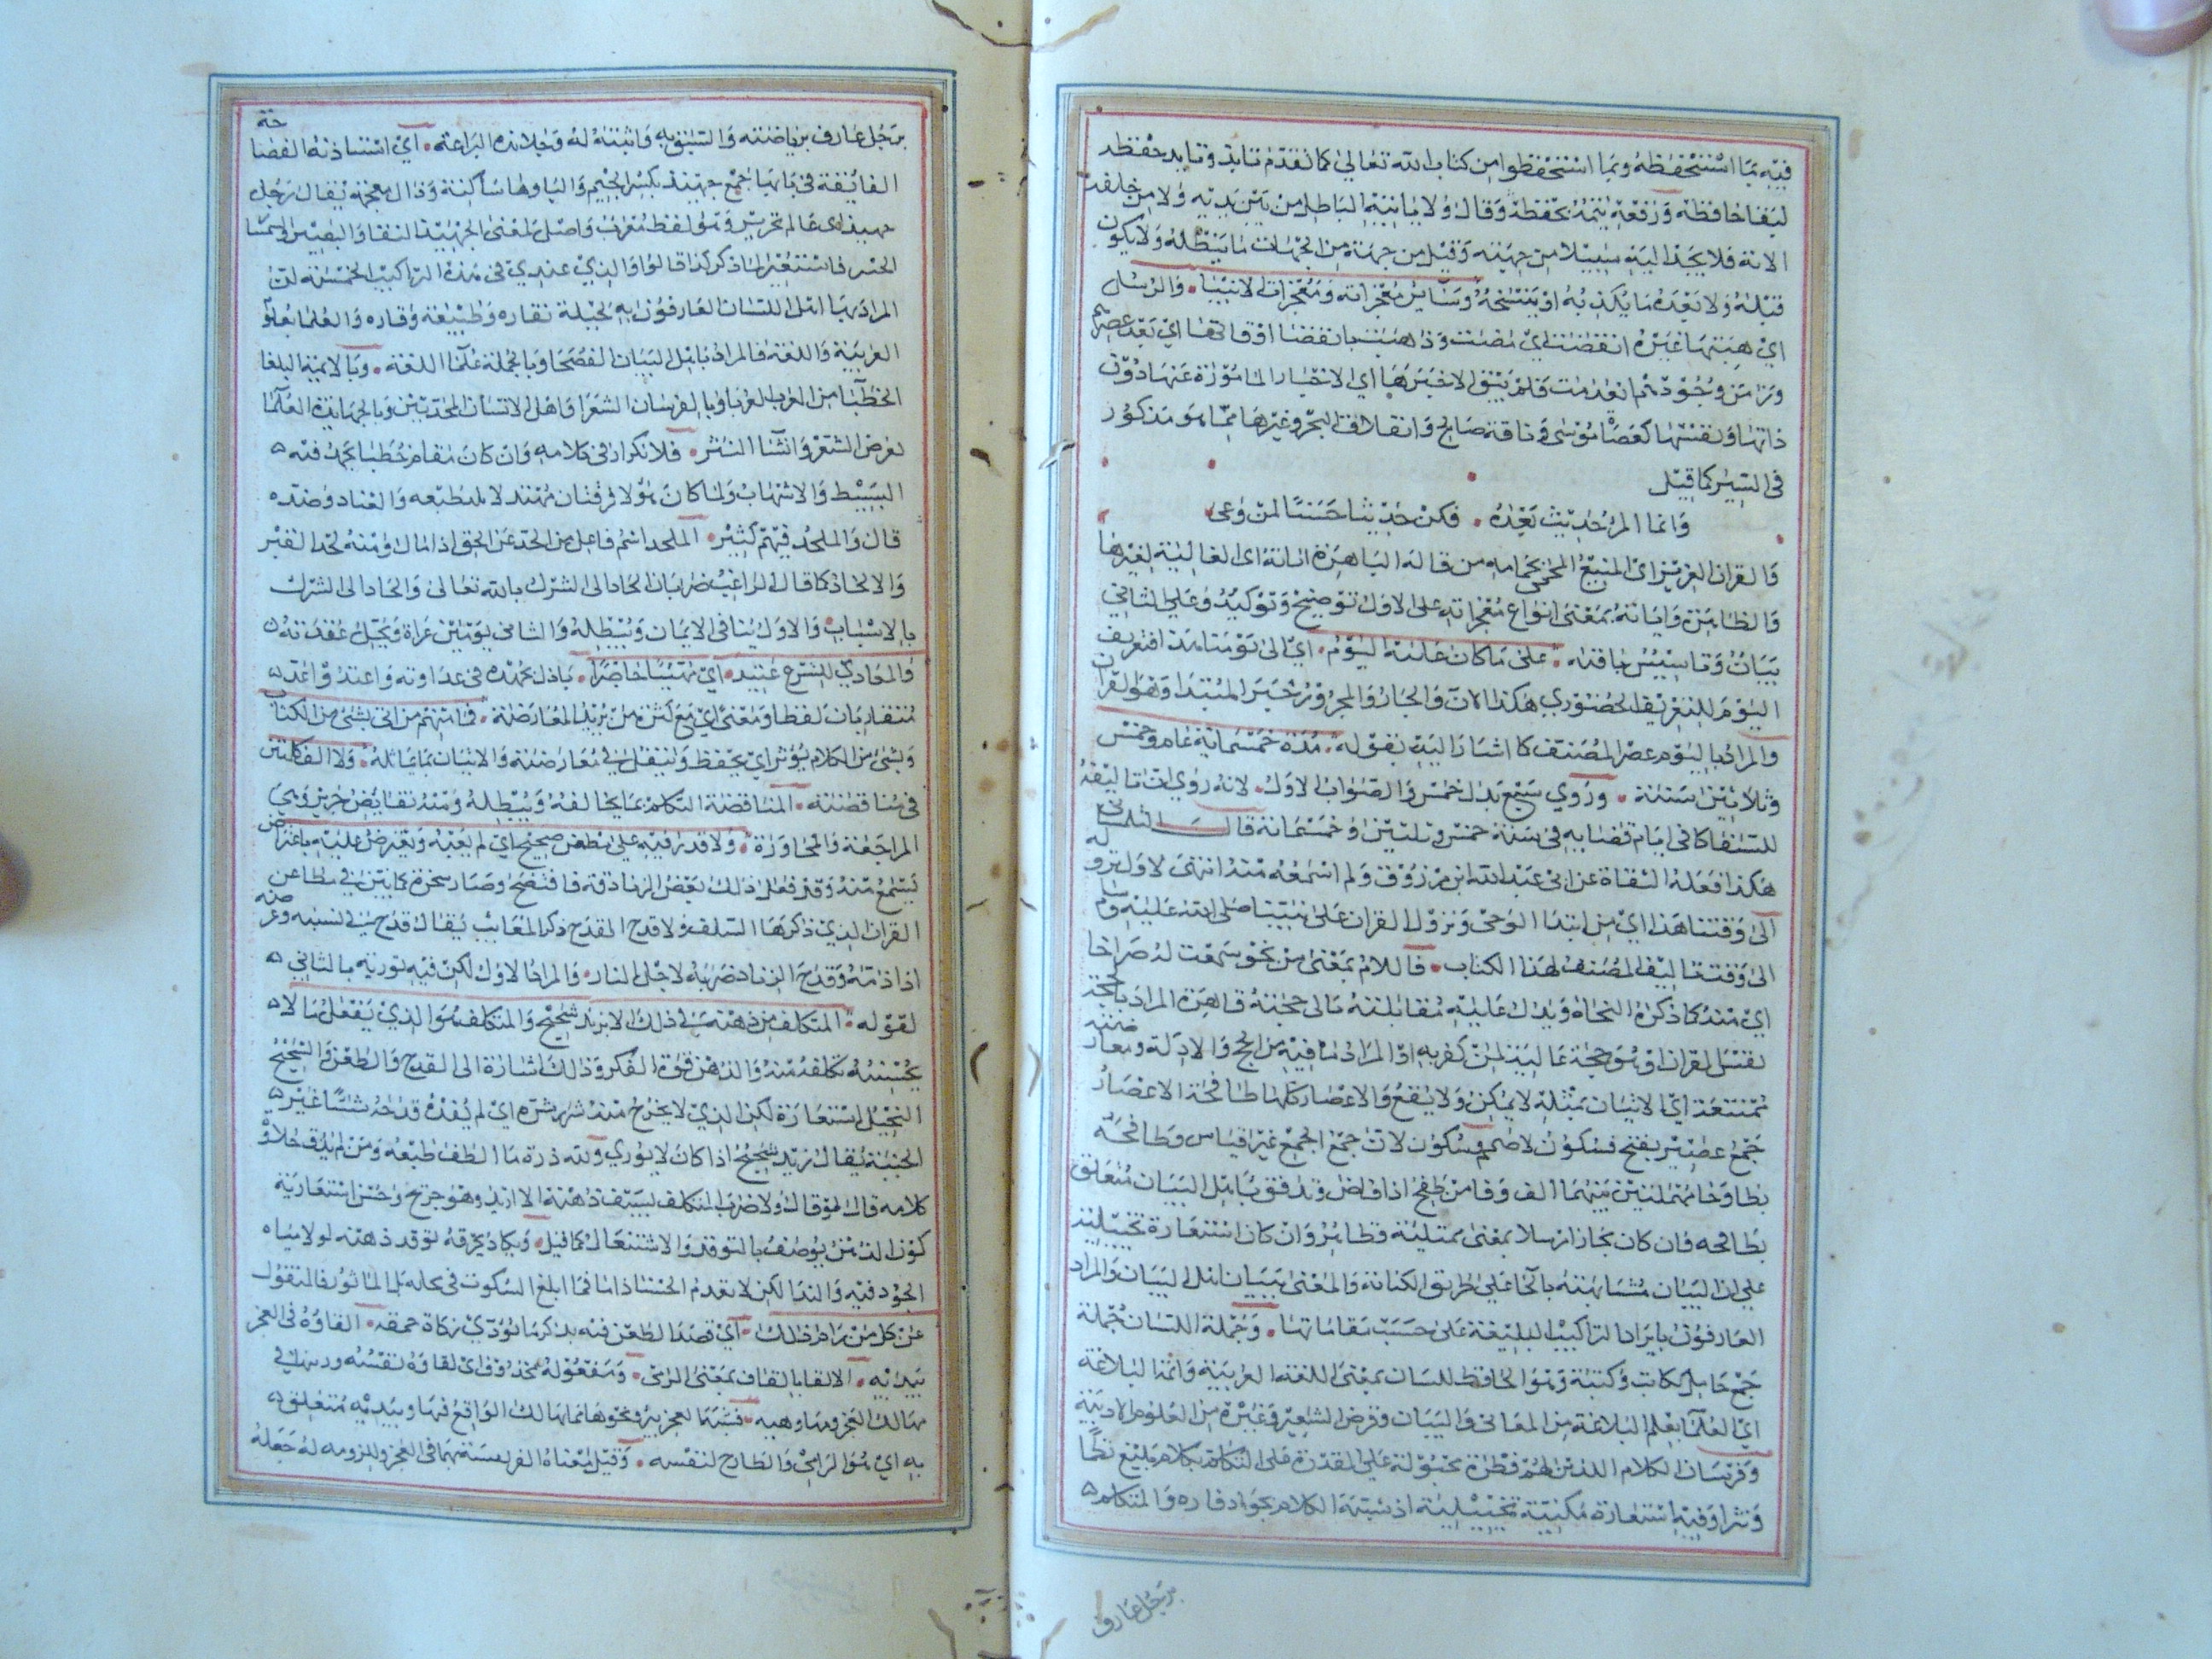 فيه بما استحفظه وبما استحفظوا من كتاب الله تعالى كما تقدم
حافظه وقال ولا ياتيه الباطل من بين يديه ولا من خلفه
الاية فلا يجد اليه سبيلا من جهته وقيل من جهة من الجهات ما يبطله ولا يكون
قبله ولا بعده ما يكذبه او ينسخه وسائر معجزاته ومعجزات الانبيا والرسل
انقضت اي مضت وذهبت بانقضا اوقاتها اي بعد عصرهم
وزمن وجودهم انعدمت فلم يبق الا خبرها اي الاخبار الماثورة عنها دون
ذاتها ونفسها كعصا موسى وناقة صالح وانفلاق البحر وغيرها مما هو مذكور
في السير كما قيل
وانما المرء حديث بعده فكن حديثا حسنا لمن وعى
والقران العزيز اي المنيع الباهرة اياته اي الغالبة لغيرها
والظاهرة واياته بمعنى انواع معجزاته على الاول توضيح وتوكيد وعلى الثاني
بيان وتاسيس على ما كان عليه اليوم اي الى يومنا هذا فتعريف
اليوم للتعريف الحضوري هكذا الان والجار والمجرور خبر المبتدا وهو القران
والمراد باليوم عصر المصنف كما اشار اليه بقوله مدة خمسمائة عام وخمس
وثلاثين سنة وروي سبع بدل خمس والصواب الاول لانه روي ان تاليفه
للشفا كان في ايام قضايه في سنة خمس وثلثين وخمسمائة قال التلمساني
هكذا فعله الثقاة عن ابي عبد الله ابن مرزوق ولم اسمعه منه انتهى لاول نزوله
الى وقتنا هذا اي من ابتدا الوحي ونزول القران على نبينا صلى الله عليه وسلم
الى وقت تاليف المصنف لهذا الكتاب فاللام بمعنى من نحو سمعت له صراخا
اي منه كما ذكره النحاة ويدل عليه مقابلته بالى حجته قاهرة المراد بالحجة
نفس القران او هو حجة غالبة لمن كفر به او المراد ما فيه من الحجج والادلة ومعارضته
ممتنعة اي الاتيان بمثله لا يمكن ولا يقع والاعصار كلها طافحة الاعصار
جمع عصر بفتح فسكون لا ضم وسكون لان جمع الجمع غير قياس وطافحة
بطا وحا مهملتين بينهما الف وفا من طفح اذا فاض وتدفق باهل البيان متعلق
بطافحة فان كان مجازا مرسلا بمعنى ممتلئة فظاهر وان كان استعارة تخييلية
على ان البيان مشابهته بالما على طريق الكناية والمعنى ببيان اهل البيان والمراد
العارفون بايراد التراكيب البليغة على حسب مقاماتها وحملة اللسان حملة
جمع حامل ككاتب وكتبة وهو الحافظ للسان بمعنى اللغة العربية وائمة البلاغة
اي العلما بعلم البلاغة من المعاني والبيان وقرض الشعر وغيره من العلوم الادبية
وفرسان الكلام الذين لهم فطرة مجبولة على القدرة على التكلم بكلام بليغ نظما
ونثرا وفيه استعارة مكنية تخييلية اذ شبه الكلام بجواد فاره والمتكلم
برجل عارف
برجل عارف برياضته والسبق به واثبته له وجهابذة البراعة اي اساتذته الفضا
الفائقة في بابها جمع جهبذ بكسر الجيم والبا وها ساكنة وذال معجمة يقال رجل
جهبذ اي عالم نحرير وهو لفظ معرب واصل معنى الجهبذ النقاد البصير
فاستعير لما ذكر كذا قالوا والذي عندي في هذه التراكيب الخمسة ان
المراد اهل اللسان العارفون به
العربية واللغة فالمراد باهل البيان الفصحا وبالجملة علما اللغة وبالايمة البلغا
الخطبا من العرب العربا وبالفرسان الشعرا واهل الانشا المحدثين وبالجهابذة العلما
بقرض الشعر وانشا النثر فلا تكرار في كلامه وان كان مقام خطبا يحمد فيه
البسط والاسهاب ولما كان هؤلا فرقتان مهتد والعناد وضده
قال والملحد فيهم كثير الملحد اسم فاعل من الحد عن الحق اذا مال ومنه لحد القبر
والالحاد كما قال الراغب ضربان الحاد الى الشرك بالله تعالى والحاد الى الشرك
بالاسباب والاول ينافي الايمان ويبطله والثاني يوهن عراه ويحل عقدته
والمعادي للشرع عتيد اي مهيئا حاضرا باذل جهده في عداوته واعتد واعد
متقاربان لفظا ومعنى اي مع كثرة من يريد المعارضة فما منهم من اتى بشئ من الكتاب
وبشئ من الكلام يؤثر اي يحفظ وينقل في معارضته والاتيان بما يماثله ولا الف كلمتين
في مناقضته المناقضة التكلم بما يخالفه ويبطله ومنه نقايض جرير وهي
المراجعة والمحاورة ولا قدر فيه على مطعن صحيح اي لم يعبه ويعترض عليه باعتراض
يسمع منه وقد فعل ذلك بعض الزنادقة فافتضح وصار سخرة كما بين في مطاعن
القران الذي ذكرها السلف ولا قدح المقدح ذكر المعايب يقال قدح في نسبه وعرضه
اذا ذمه وقدح الزناد ضربه لاجل النار والمراد الاول لكن فيه تورية بالثاني
لقوله المتكلف من ذهنه في ذلك الا بزند شحيح والمتكلف هو الذي يفعل ما لا
يحسنه تكلفه منه والذهن قوة الفكر وذلك اشارة الى القدح والطعن والشحيح
البخيل استعارة لكن الذي لا يخرج منه شرر اي لم يفده قدحه شيئا غير
الخيبة يقال زند شحيح اذا كان لا يوري ولله دره ما الطف طبعه ومن لم يذق حلاوة
كلامه قال لو قال ولا ضرب المتكلف بسيف ذهنه الا ارتد وهو جريح وحسن استعارية
كون الذهن يوصف بالتوقد والاشتعال كما قيل ويكاد يحرقه توقد ذهنه لولا مياه
الجود فيه والندا لكن لا تعدم الحسنا ذاما فما ابلغ السكوت في محله بل الماثور فالمنقول
عن كل من رام ذلك اي قصد الطعن فيه بذكر ما يؤدي ركاة حمقه القاؤه في العجز
بيديه الالقا بالقاف بمعنى الرمي ومفعوله محذوف اي القاؤه نفسه
مهالك العجز ومهاويه فشبه العجز ببئر ونحوها مما يهلك الواقع فيها وبيديه متعلق
به اي هو الرامي والطارح لنفسه وقيل معناه في العجز ولزومه له جعله